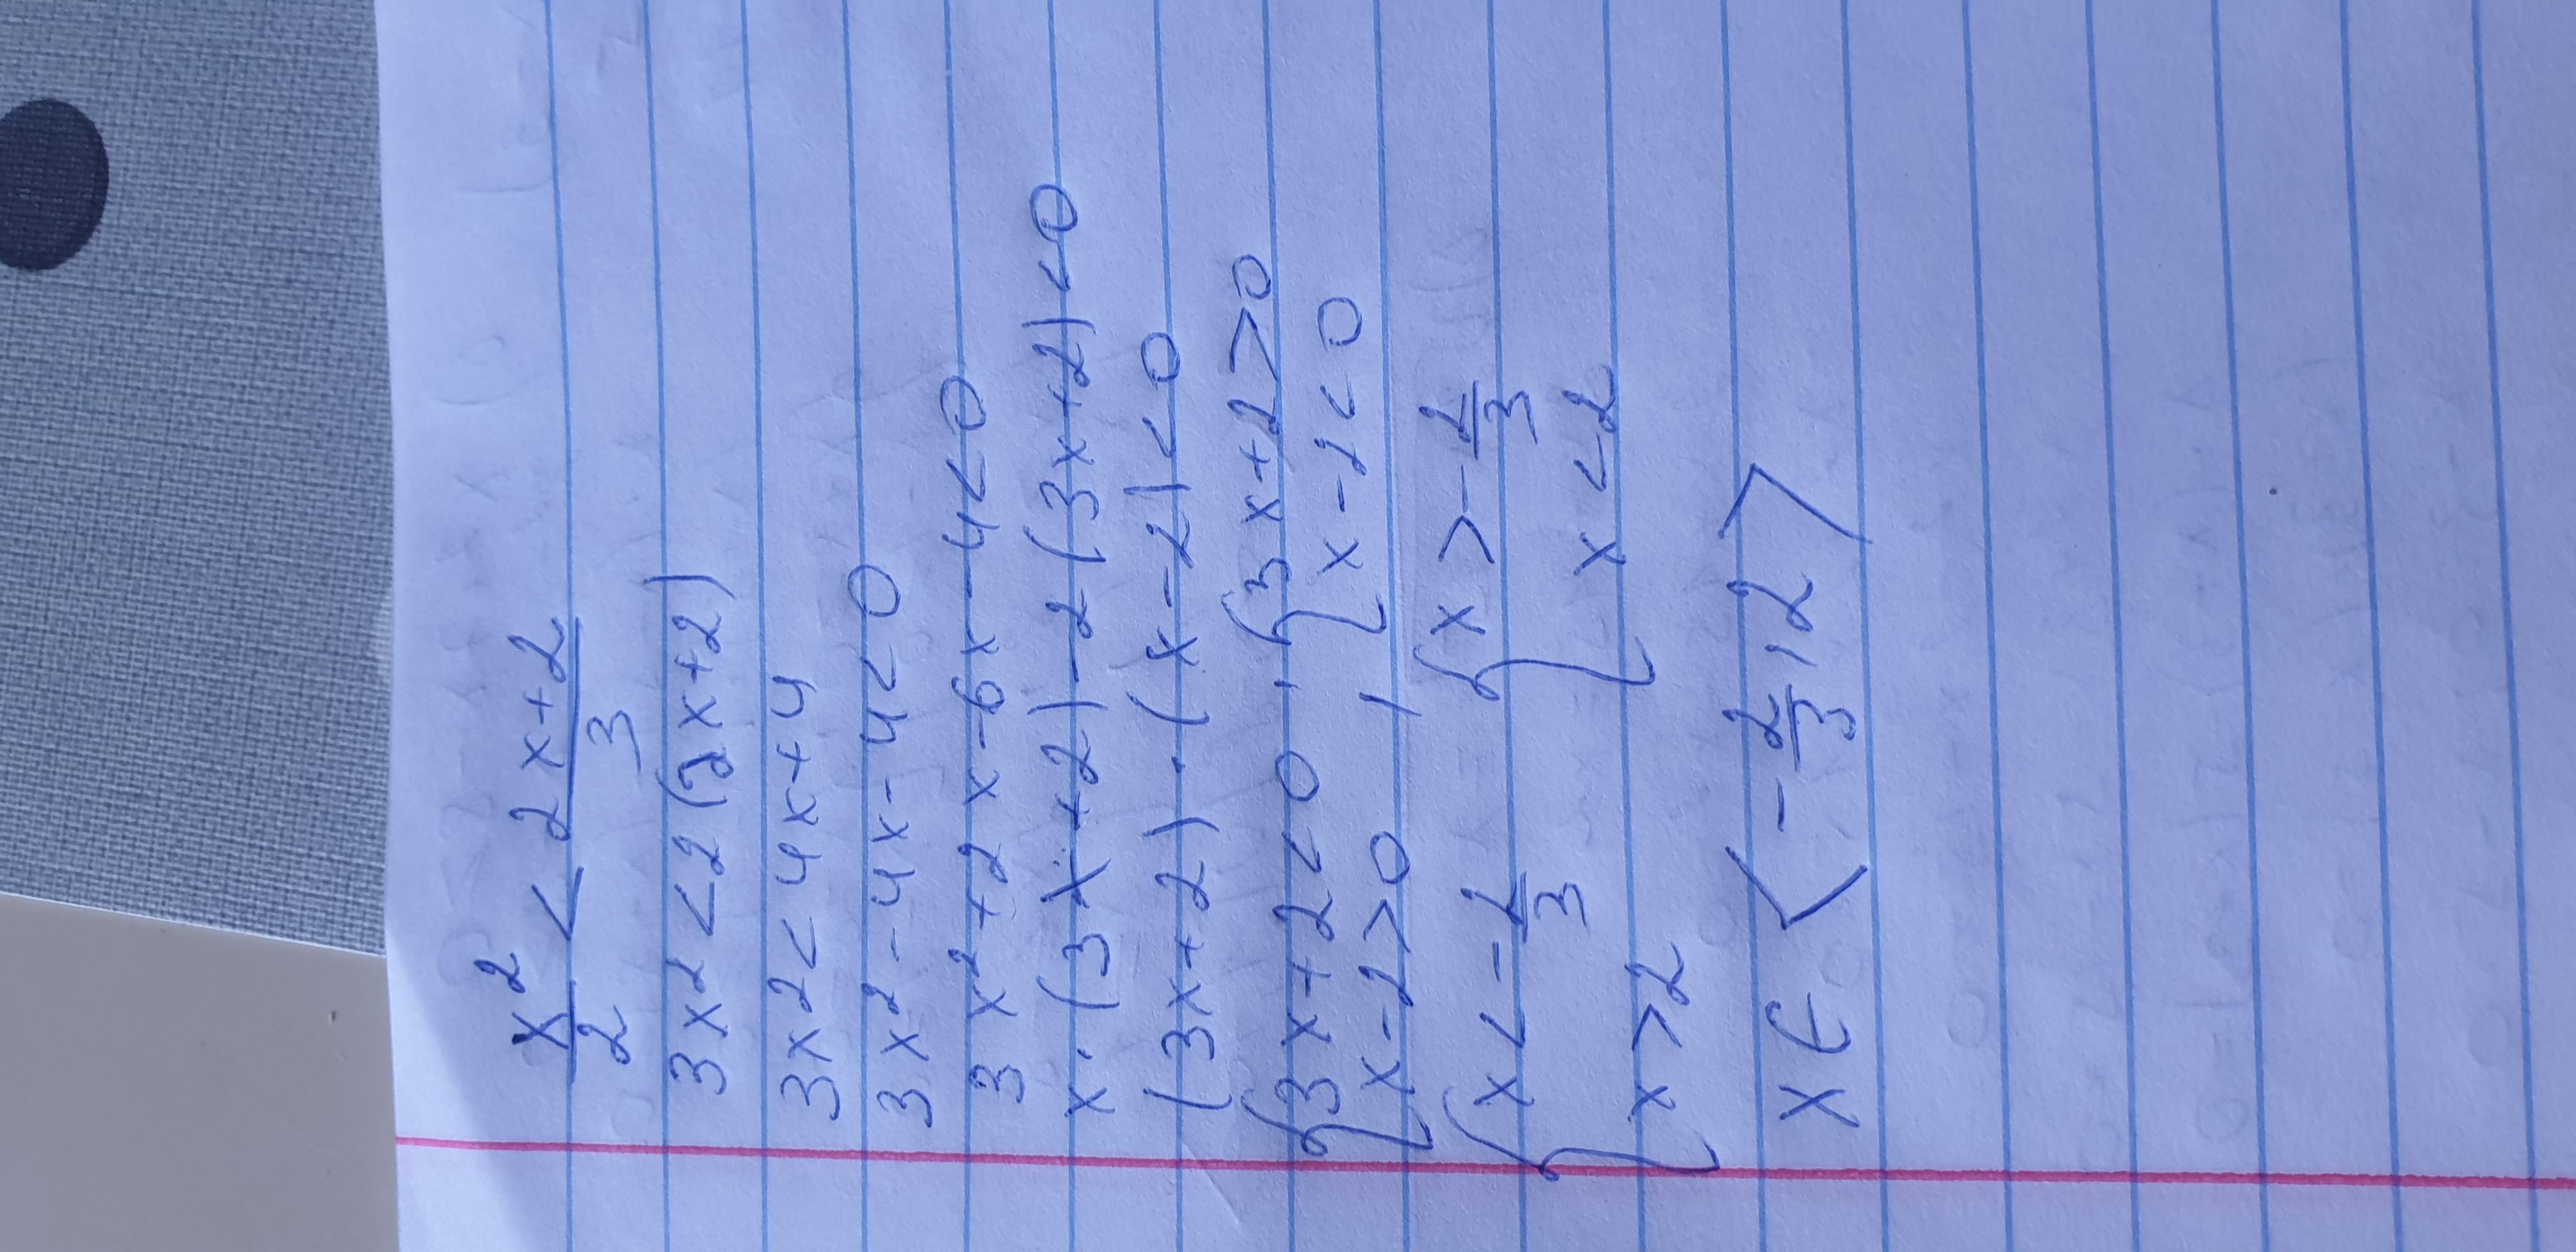 x²/2 < 2x+2/3
3x² < 2(2x+2)
3x² < 4x+4
3x² - 4x - 4 < 0
3x² + 2x - 6x - 4 < 0
x · (3x+2) - 2(3x+2) < 0
(3x+2) · (x-2) < 0
{3x+2 < 0 , {3x+2 > 0
x-2 > 0 , x-2 < 0
{x < -2/3 {x > -2/3
x > 2 x < 2
x ∈ ⟨-2/3, 2⟩